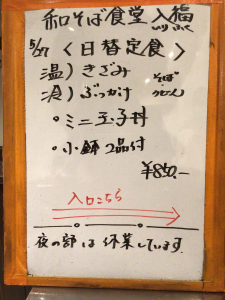 和そば食堂 入福
いりふく
5/27 〈日替定食〉
温)きざみ そば
冷)ぶっかけ うどん
・ミニ玉子丼
・小鉢2品付
¥850.-
入口こちら
夜の部は休業しています